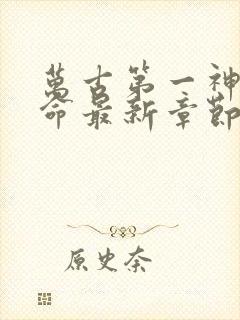 萬古第一神
命最新章節
原史奈